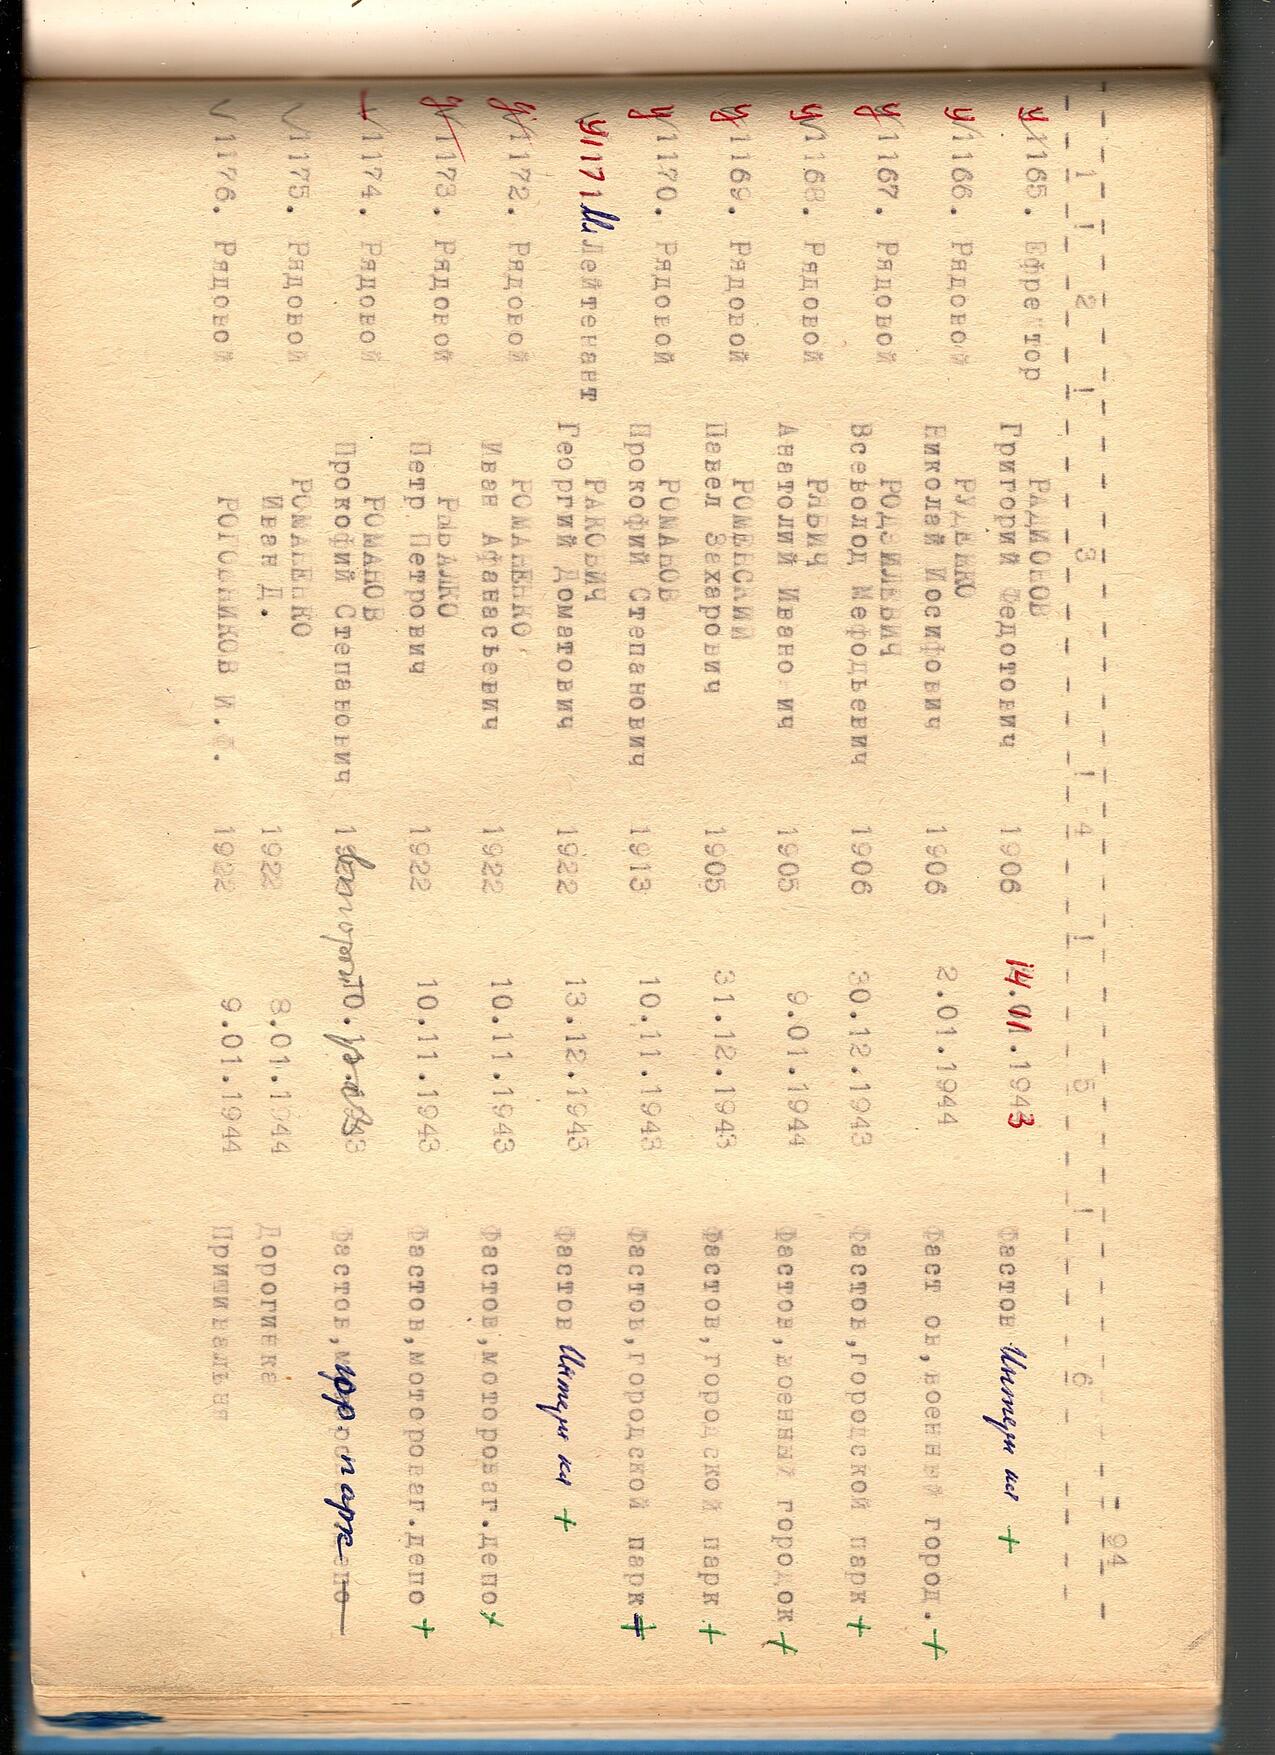 - 94 -
1 ! 2 ! 3 ! 4 ! 5 ! 6
у 1165. Ефре тор РАДИОНОВ
Григорий Федотович 1906 14.01.1943 Фастов Интерн кл +
у 1166. Рядовой РУДЕНКО
Николай Иосифович 1906 2.01.1944 Фаст ов,военный город. +
у 1167. Рядовой РОДЗИЛЕВИЧ
Всеволод Мефодьевич 1906 30.12.1943 Фастов,городской парк +
у 1168. Рядовой
Анатолий Ивано ич 1905 9.01.1944 Фастов,военный городок +
у 1169. Рядовой РОМЕНСКИЙ
Павел Захарович 1905 31.12.1943 Фастов,городской парк +
у 1170. Рядовой РОМАНОВ
Прокофий Степанович 1913 10.11.1943 Фастов,городской парк +
у 1171 Лейтенант РАКОВИЧ
Георгий Доматович 1922 13.12.1943 Фастов Интерн кл +
у 1172. Рядовой РОМАНЕНКО
Иван Афанасьевич 1922 10.11.1943 Фастов,мотороваг.депо +
у 1173. Рядовой РЫБАЛКО
Петр Петрович 1922 10.11.1943 Фастов,мотороваг.депо +
1174. Рядовой РОМАНОВ
Прокофий Степанович Фастов, гор. парк
√ 1175. Рядовой РОМАНЕНКО
Иван Д. 1922 8.01.1944 Дорогинка
√ 1176. Рядовой РОГОЖНИКОВ И. 1922 9.01.1944 Пришивальня